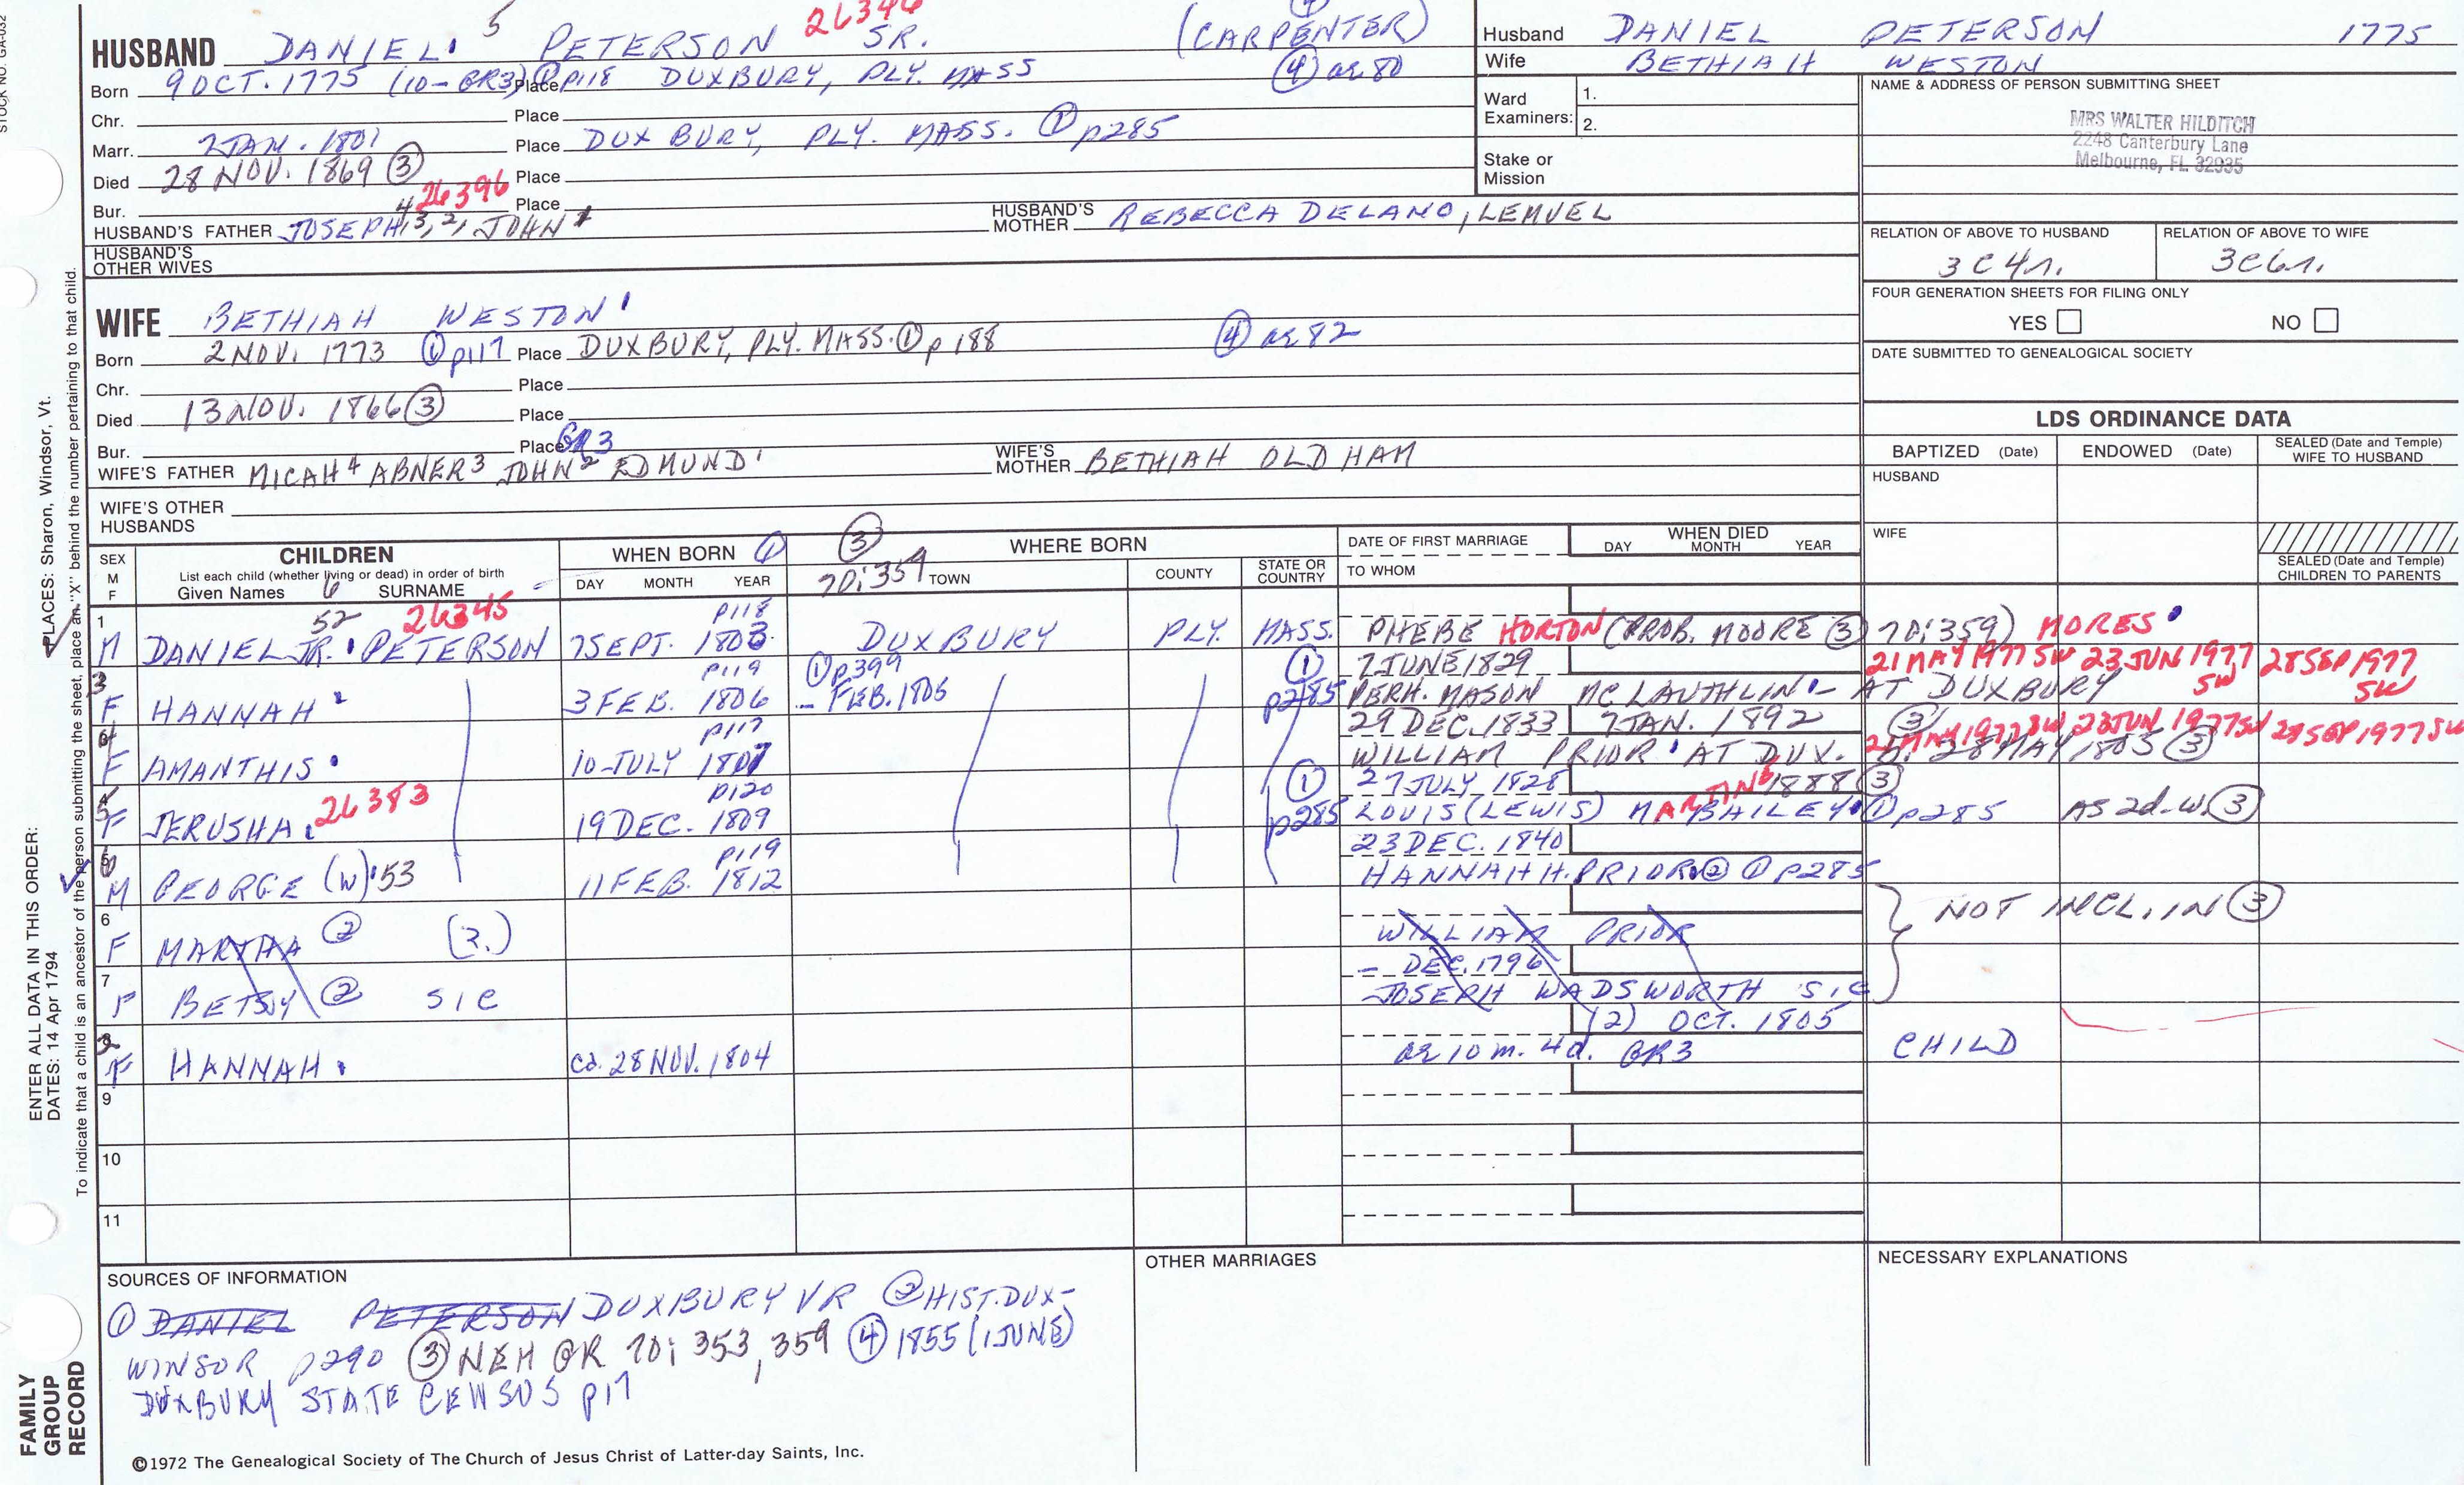 STOCK NO. GA-032
HUSBAND DANIEL 5 PETERSON SR. (CARPENTER) ④
Born 9 OCT. 1775 (10-GR3) ① p118 Place DUXBURY, PLY. MASS ④ ae 80
Chr. Place
Marr. 2 JAN. 1801 Place DUXBURY, PLY. MASS. ① p285
Died 28 NOV. 1869 ③ Place
Bur. 26396 Place
HUSBAND'S FATHER JOSEPH 4, 3, 2, JOHN 1 HUSBAND'S MOTHER REBECCA DELANO, LEMUEL
HUSBAND'S OTHER WIVES
WIFE BETHIAH WESTON
Born 2 NOV. 1773 ① p117 Place DUXBURY, PLY. MASS. ① p188 ④ ae 82
Chr. Place
Died 13 NOV. 1866 ③ Place
Bur. Place GR3
WIFE'S FATHER MICAH 4 ABNER 3 JOHN 2 EDMUND 1 WIFE'S MOTHER BETHIAH OLDHAM
WIFE'S OTHER HUSBANDS
Husband DANIEL PETERSON 1775
Wife BETHIAH WESTON
Ward Examiners: 1. 2.
Stake or Mission
NAME & ADDRESS OF PERSON SUBMITTING SHEET
MRS WALTER HILDITCH
2248 Canterbury Lane
Melbourne, FL 32935
RELATION OF ABOVE TO HUSBAND RELATION OF ABOVE TO WIFE
3C4r. 3C6r.
FOUR GENERATION SHEETS FOR FILING ONLY
YES NO
DATE SUBMITTED TO GENEALOGICAL SOCIETY
LDS ORDINANCE DATA
BAPTIZED (Date) ENDOWED (Date) SEALED (Date and Temple) WIFE TO HUSBAND
HUSBAND
WIFE
SEALED (Date and Temple) CHILDREN TO PARENTS
SEX M F CHILDREN WHEN BORN ① ③ 70:359 WHERE BORN DATE OF FIRST MARRIAGE WHEN DIED
List each child (whether living or dead) in order of birth
Given Names 6 SURNAME DAY MONTH YEAR TOWN COUNTY STATE OR COUNTRY TO WHOM DAY MONTH YEAR
1 52 26345 p118
M DANIEL JR. PETERSON 7 SEPT. 1803 DUXBURY PLY. MASS. PHEBE HORTON (PROB. MOORE ③ 70:359) MORES
3 p119 ① p399 ① 7 JUNE 1829 21 MAY 1977 SW 23 JUN 1977 SW 28 SEP 1977 SW
F HANNAH 3 FEB. 1806 – FEB. 1806 p285 PERH. MASON MC LAUTHLIN – AT DUXBURY
p117 29 DEC. 1833 7 JAN. 1892 ③ 21 MAY 1977 SW 23 JUN 1977 SW 28 SEP 1977 SW
F AMANTHIS 10 JULY 1807 WILLIAM PRIOR AT DUX. b. 28 MAY 1805 ③
26383 p120 ① 27 JULY 1828 1888 ③
F JERUSHA 19 DEC. 1809 p285 LOUIS (LEWIS) MARTIN BAILEY ① p285 AS 2d. W. ③
p119 23 DEC. 1840
M GEORGE (W) 53 11 FEB. 1812 HANNAH H. PRIOR ② ① p285
6
F MARTHA ② (?.) WILLIAM PRIOR NOT INCL. IN ③
7 – DEC. 1796
F BETSY ② SIC JOSEPH WADSWORTH SIC
(2) OCT. 1805
F HANNAH ca. 28 NOV. 1804 ae 10 m. 4 d. GR3 CHILD
9
10
11
SOURCES OF INFORMATION
① DANIEL PETERSON DUXBURY VR ② HIST. DUX-
WINSOR p290 ③ NEHGR 70: 353, 359 ④ 1855 (1 JUNE)
DUXBURY STATE CENSUS p17
OTHER MARRIAGES
NECESSARY EXPLANATIONS
©1972 The Genealogical Society of The Church of Jesus Christ of Latter-day Saints, Inc.
FAMILY GROUP RECORD
ENTER ALL DATA IN THIS ORDER:
DATES: 14 Apr 1794 PLACES: Sharon, Windsor, Vt.
To indicate that a child is an ancestor of the person submitting the sheet, place an "X" behind the number pertaining to that child.